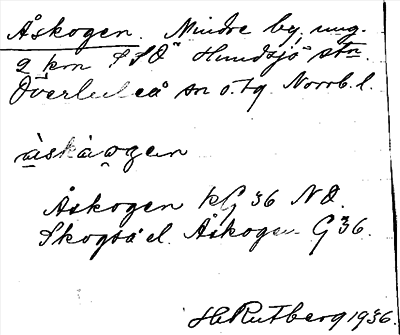 Åskogen. Mindre by, ung.
2 km SSO Hundsjö stn.
Överluleå sn o. tg Norrb. l.
àskàogen
Åskogen kG 36 NO.
Skogså el. Åskogen G 36.
H Rutberg 1936.